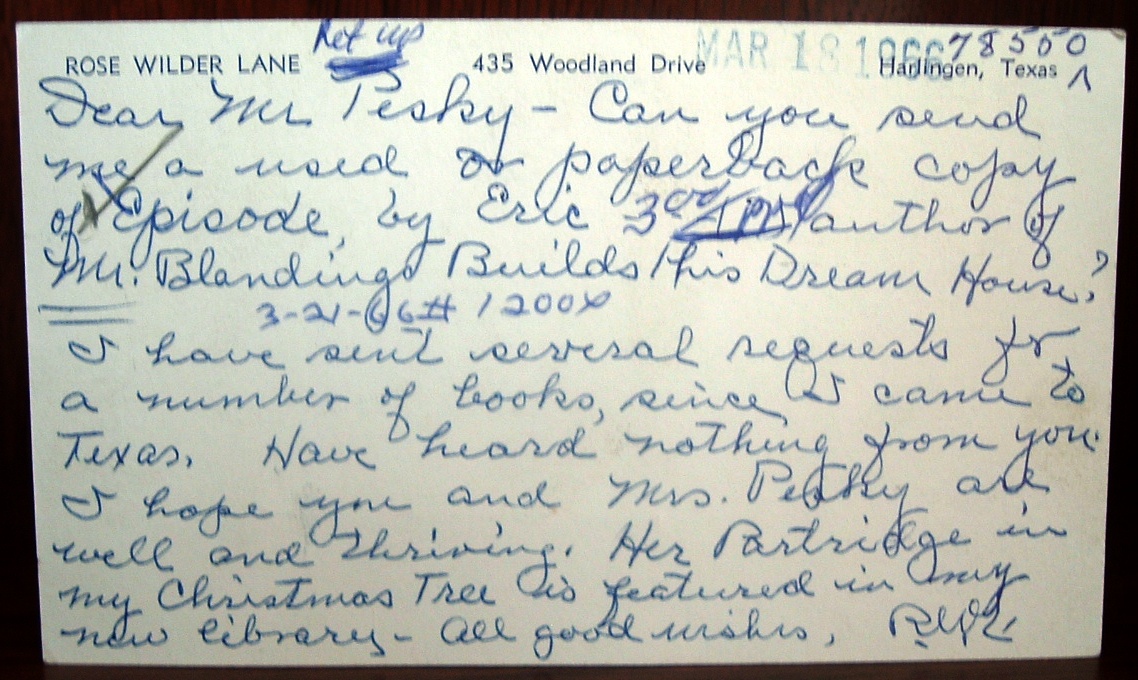 ROSE WILDER LANE 435 Woodland Drive MAR 18 1966 78550 Harlingen, Texas
Dear Mr Pesky – Can you send
me a used or paperback copy
of Episode, by Eric author of
Mr. Blandings Builds His Dream House?
3-21-66 # 1200x
I have sent several requests for
a number of books, since I came to
Texas. Have heard nothing from you.
I hope you and Mrs. Pesky are
well and thriving. Her Partridge in
my Christmas Tree is featured in my
new library – All good wishes, RWL